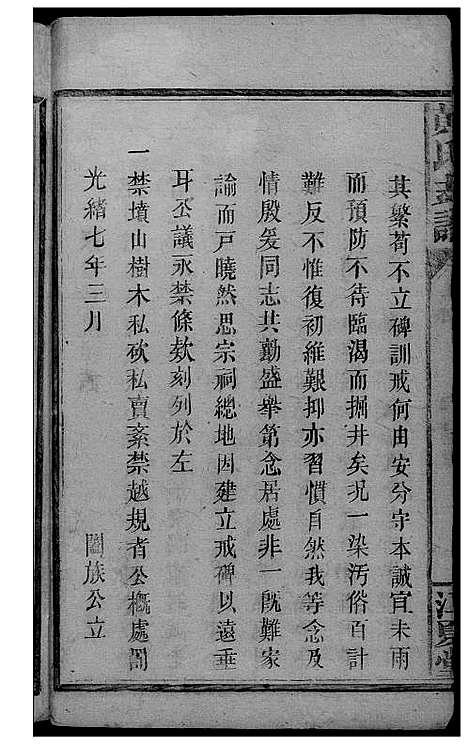 其縈荀不立碑訓戒何由安分守本誠宜未雨
而預防不待臨渴而掘井矣况一染汚俗百計
難反不惟復初維艱抑亦習慣自然我等念及
情殷爰同志共勷盛舉第念居處非一旣難家
諭而戸曉然思宗祠總地因建立戒碑以遠垂
耳公議永禁條欵刻列於左
一禁墳山樹木私砍私賣紊禁越規者公概處罰
光緒七年三月　闔族公立
氏
江夏堂